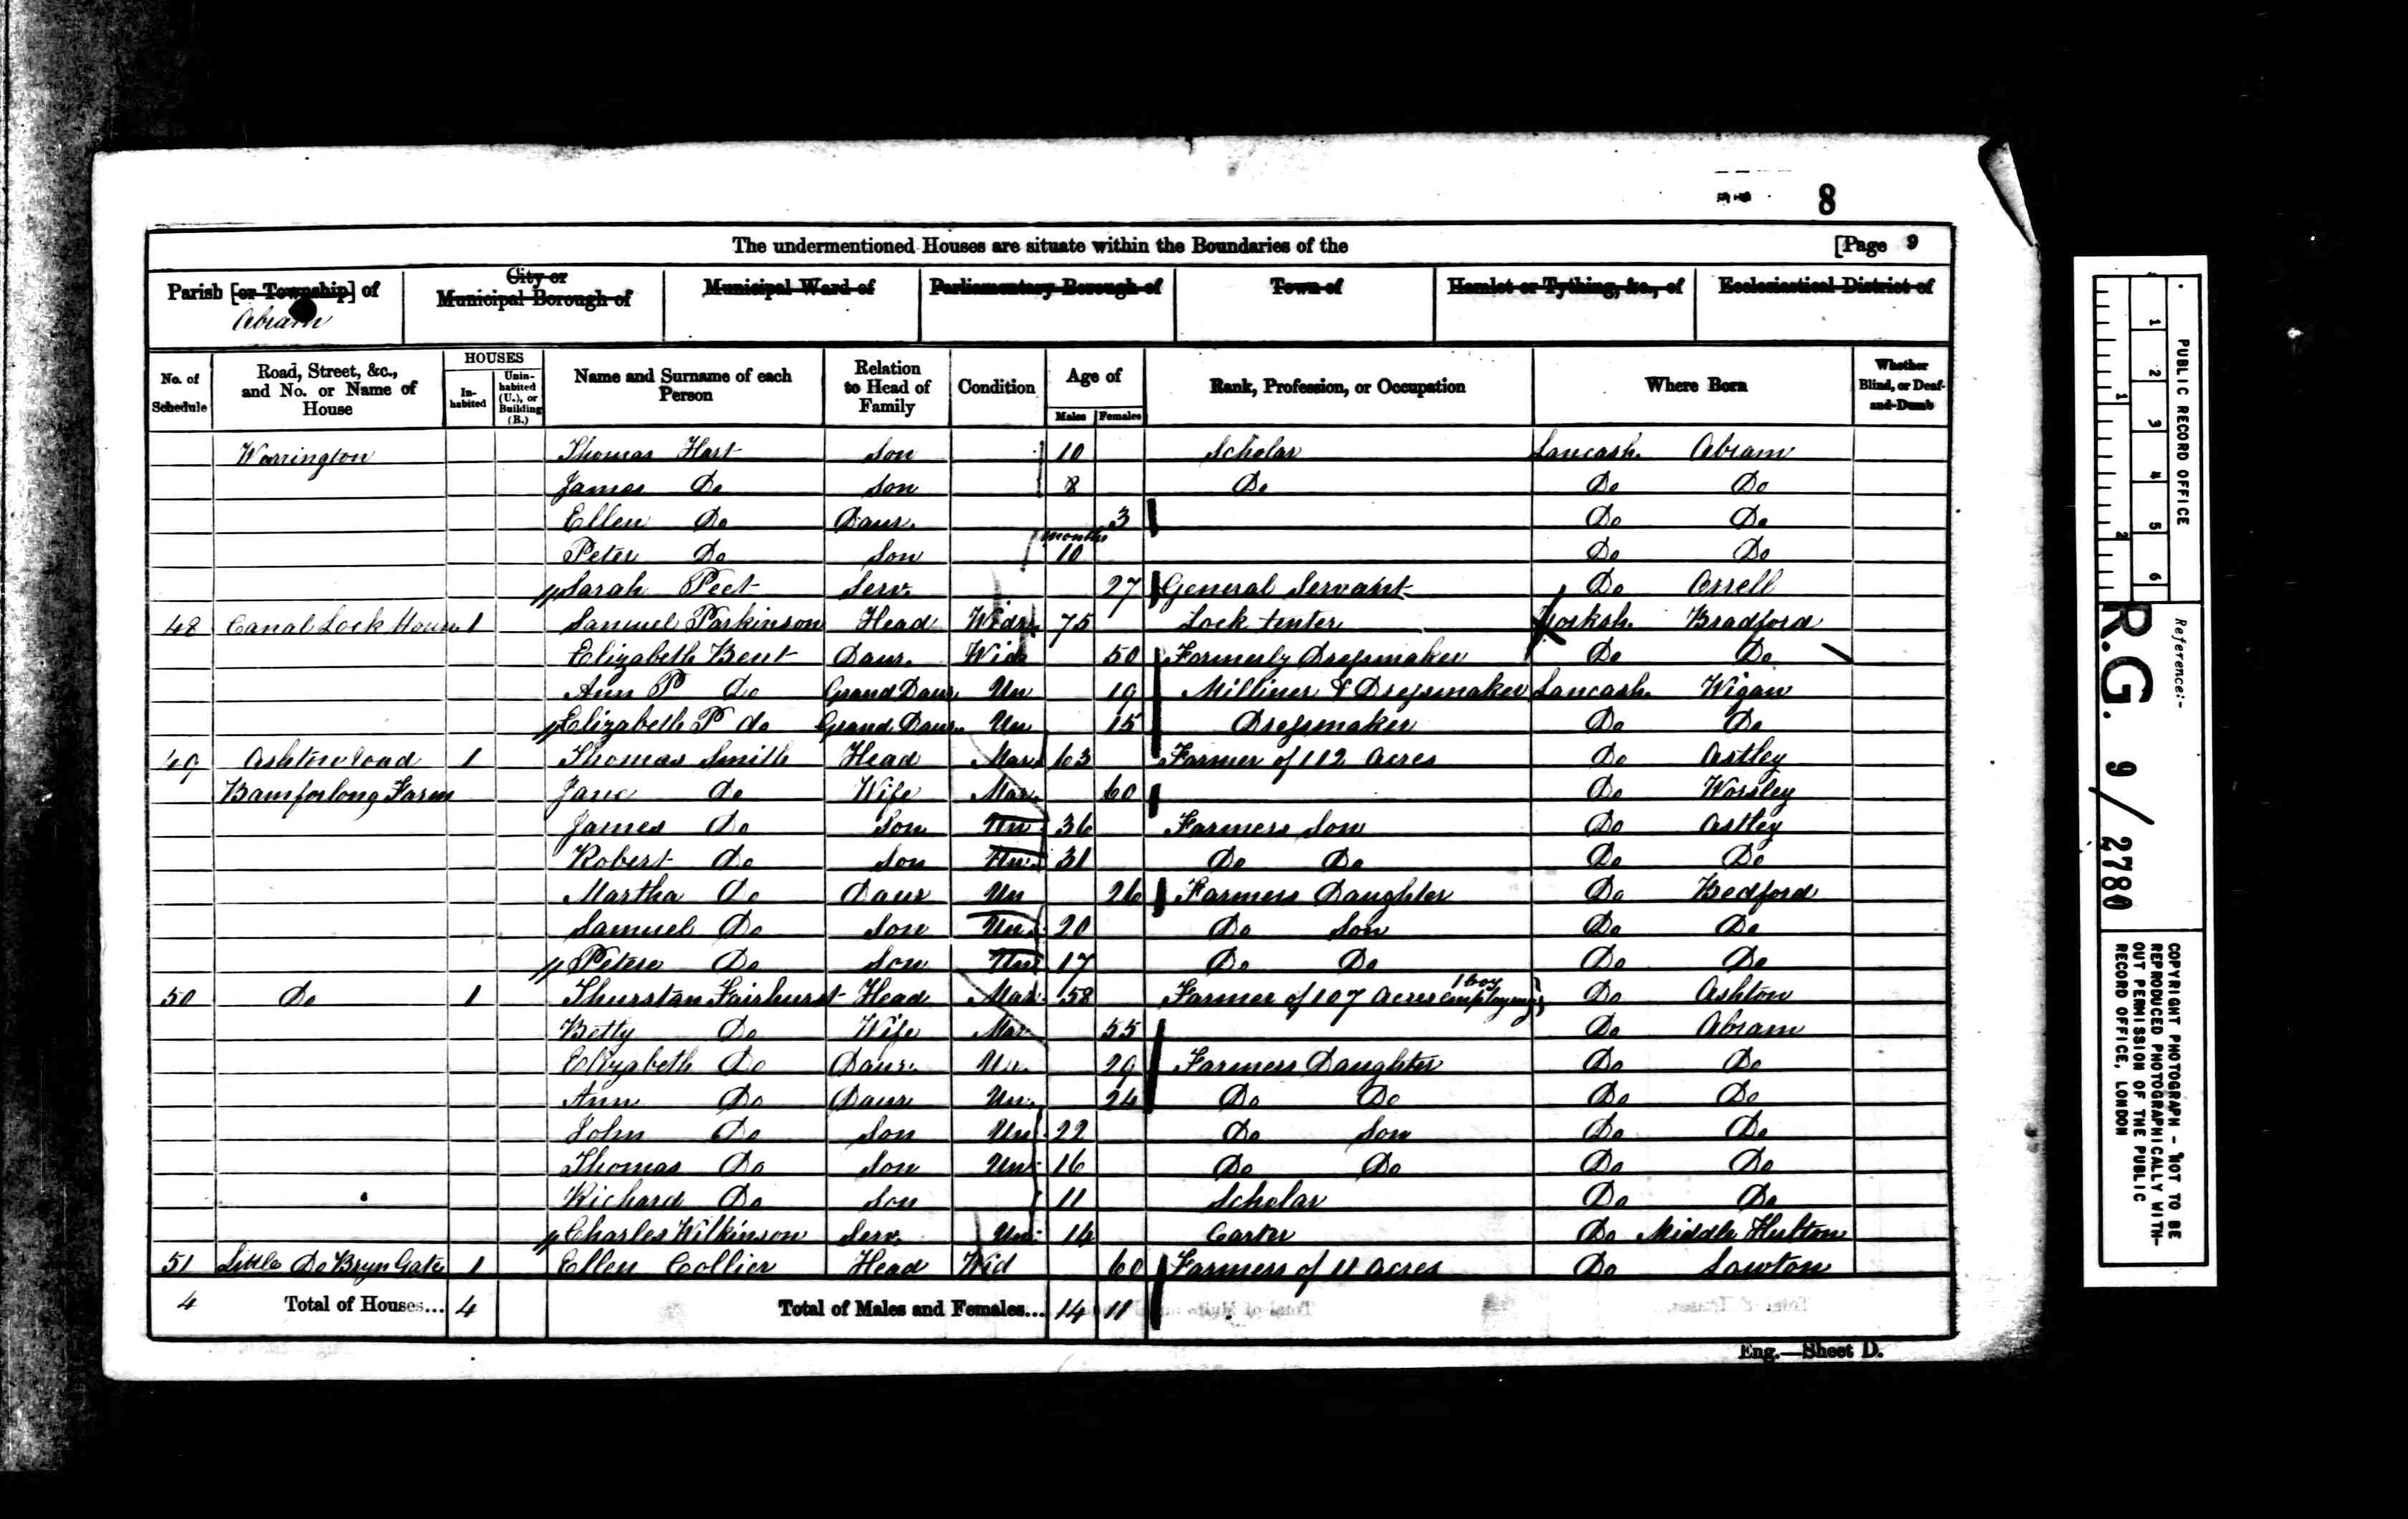 8
The undermentioned Houses are situate within the Boundaries of the [Page 9
Parish [or Township] of City or Municipal Borough of Municipal Ward of Parliamentary Borough of Town of Hamlet or Tything, &c., of Ecclesiastical District of
Abram
No. of Schedule Road, Street, &c., and No. or Name of House HOUSES Inhabited Uninhabited (U.), or Building (B.) Name and Surname of each Person Relation to Head of Family Condition Age of Males Females Rank, Profession, or Occupation Where Born Whether Blind, or Deaf-and-Dumb
Warrington Thomas Hart Son 10 Scholar Lancash. Abram
James Do Son 8 Do Do Do
Ellen Do Daur. 3 Do Do
Peter Do Son months 10 Do Do
Sarah Peet Serv. 27 General Servant Do Orrell
48 Canal Lock House 1 Samuel Parkinson Head Widr. 75 Lock tenter Yorksh. Bradford
Elizabeth Bent Daur. Wid 50 Formerly Dressmaker Do Do
Ann P Do Grand Daur. Un 19 Milliner & Dressmaker Lancash. Wigan
Elizabeth P do Grand Daur. Un 15 Dressmaker Do Do
49 Ashton road 1 Thomas Smith Head Mar 63 Farmer of 112 Acres Do Astley
Bamforlong Farm Jane Do Wife Mar. 60 Do Worsley
James Do Son Un 36 Farmers Son Do Astley
Robert Do Son Un. 31 Do Do Do Do
Martha Do Daur Un 26 Farmers Daughter Do Bedford
Samuel Do Son Un. 20 Do Son Do Do
Peter Do Son Un 17 Do Do Do Do
50 Do 1 Thurstan Fairhurst Head Mar. 58 Farmer of 107 Acres employing 1 boy Do Ashton
Betty Do Wife Mar 55 Do Abram
Elizabeth Do Daur. Un. 29 Farmers Daughter Do Do
Ann Do Daur Un. 24 Do Do Do Do
John Do Son Un 22 Do Son Do Do
Thomas Do Son Un 16 Do Do Do Do
Richard Do Son 11 Scholar Do Do
Charles Wilkinson Serv. Un. 16 Carter Do Middle Hulton
51 Little Do Bryn Gate 1 Ellen Collier Head Wid 60 Farmers of 11 Acres Do Lowton
4 Total of Houses... 4 Total of Males and Females... 14 11
Eng.—Sheet D.
PUBLIC RECORD OFFICE
1 2 3 4 5 6
1 2
Reference:-
R.G. 9/2780
COPYRIGHT PHOTOGRAPH - NOT TO BE
REPRODUCED PHOTOGRAPHICALLY WITH-
OUT PERMISSION OF THE PUBLIC
RECORD OFFICE, LONDON